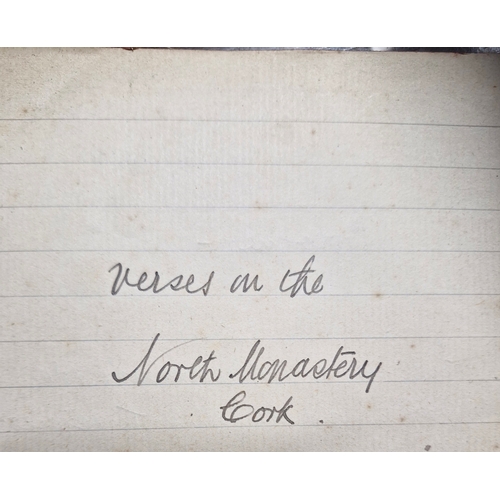 verses on the
North Monastery
Cork.